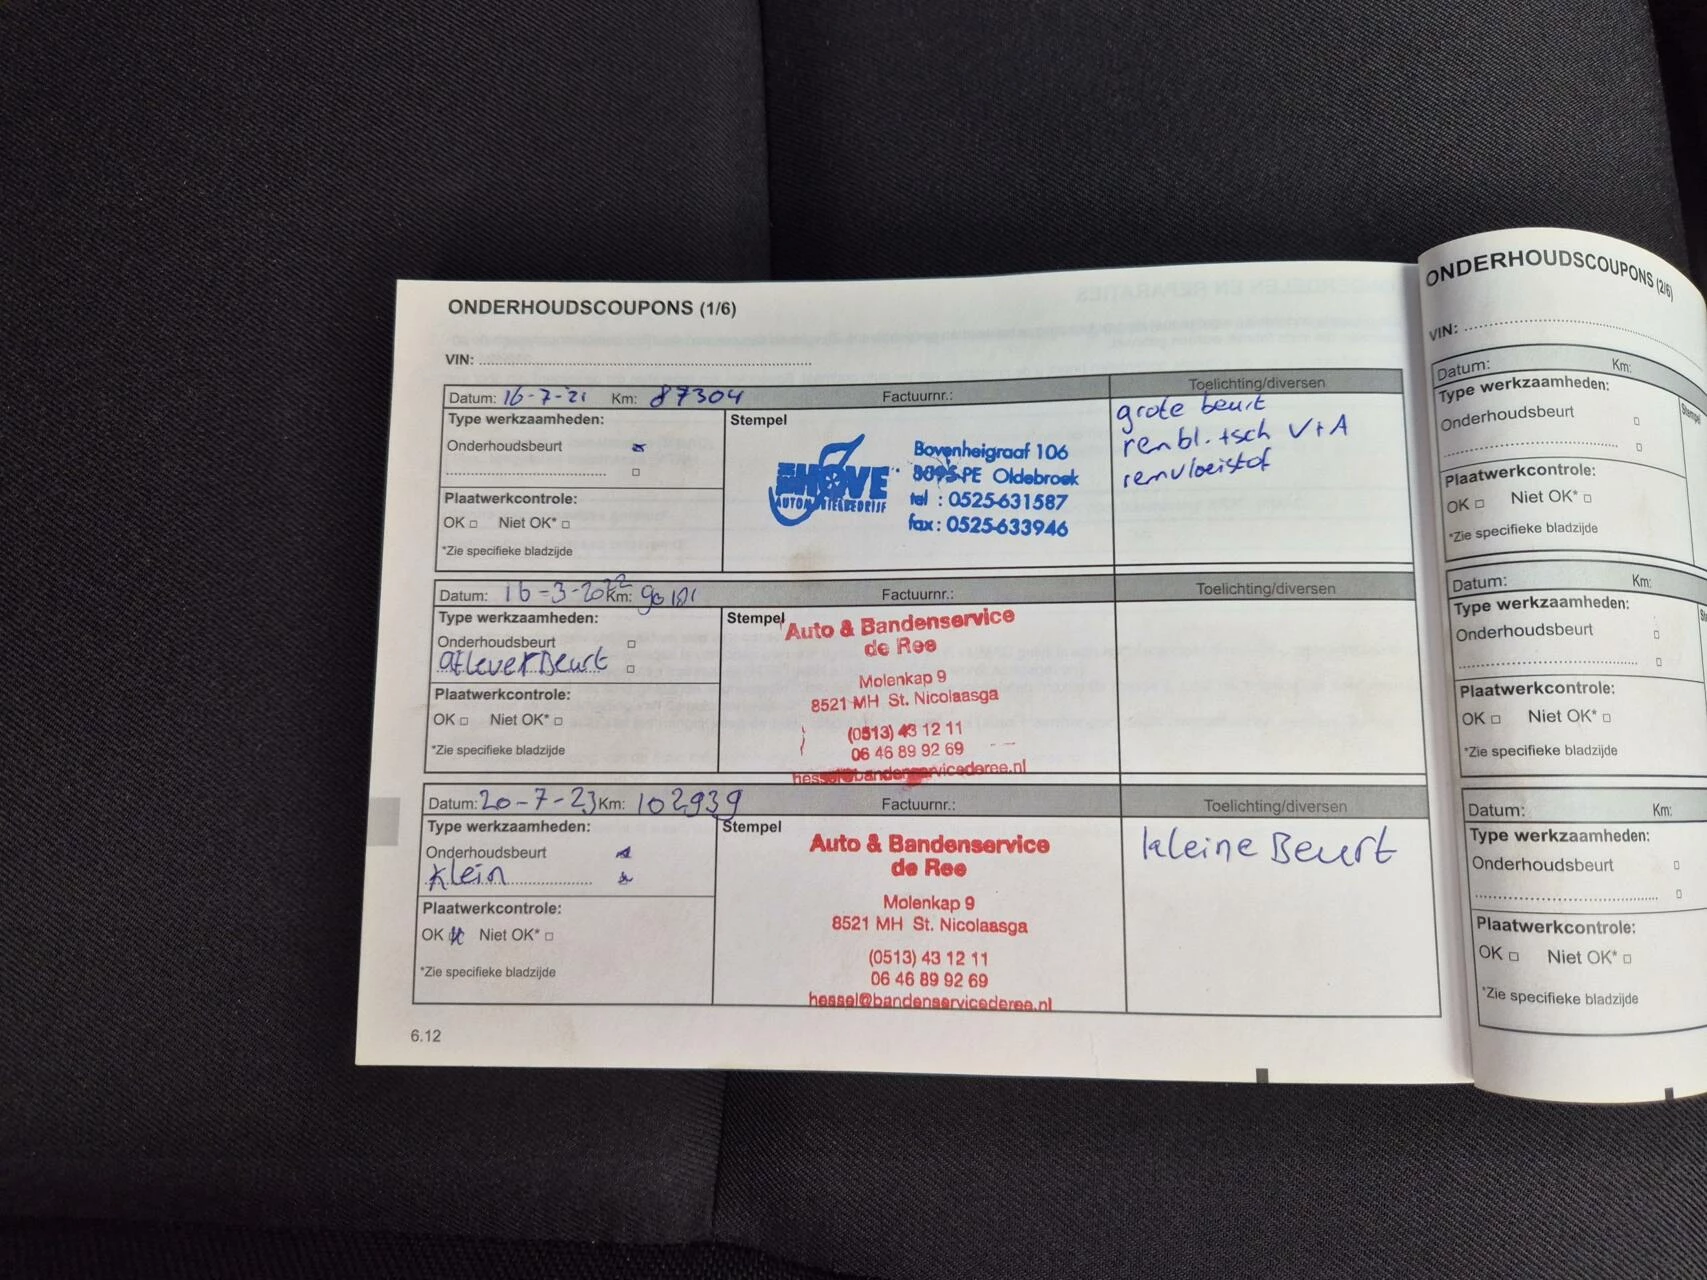 ONDERHOUDSCOUPONS (1/6)
VIN:
Datum: 16-7-21 Km: 87304 Factuurnr.: Toelichting/diversen
Type werkzaamheden:
Stempel
Onderhoudsbeurt
Plaatwerkcontrole:
OK Niet OK*
*Zie specifieke bladzijde
HOVE
Bovenheigraaf 106
8095-PE Oldebroek
tel : 0525-631587
fax : 0525-633946
grote beurt
rembl. + sch V+A
remvloeistof
Datum: 16-3-2022 Km: Factuurnr.: Toelichting/diversen
Type werkzaamheden:
Stempel
Onderhoudsbeurt
afleverBeurt
Plaatwerkcontrole:
OK Niet OK*
*Zie specifieke bladzijde
Auto & Bandenservice
de Ree
Molenkap 9
8521 MH St. Nicolaasga
(0513) 43 12 11
06 46 89 92 69
hessel@bandenservicederee.nl
Datum: 20-7-23 Km: 102939 Factuurnr.: Toelichting/diversen
Type werkzaamheden:
Stempel
Onderhoudsbeurt
Klein
Plaatwerkcontrole:
OK Niet OK*
*Zie specifieke bladzijde
Auto & Bandenservice
de Ree
Molenkap 9
8521 MH St. Nicolaasga
(0513) 43 12 11
06 46 89 92 69
hessel@bandenservicederee.nl
kleine Beurt
6.12
ONDERHOUDSCOUPONS (2/6)
VIN:
Datum: Km:
Type werkzaamheden:
Onderhoudsbeurt
Plaatwerkcontrole:
OK Niet OK*
*Zie specifieke bladzijde
Datum: Km:
Type werkzaamheden:
Onderhoudsbeurt
Plaatwerkcontrole:
OK Niet OK*
*Zie specifieke bladzijde
Datum: Km:
Type werkzaamheden:
Onderhoudsbeurt
Plaatwerkcontrole:
OK Niet OK*
*Zie specifieke bladzijde